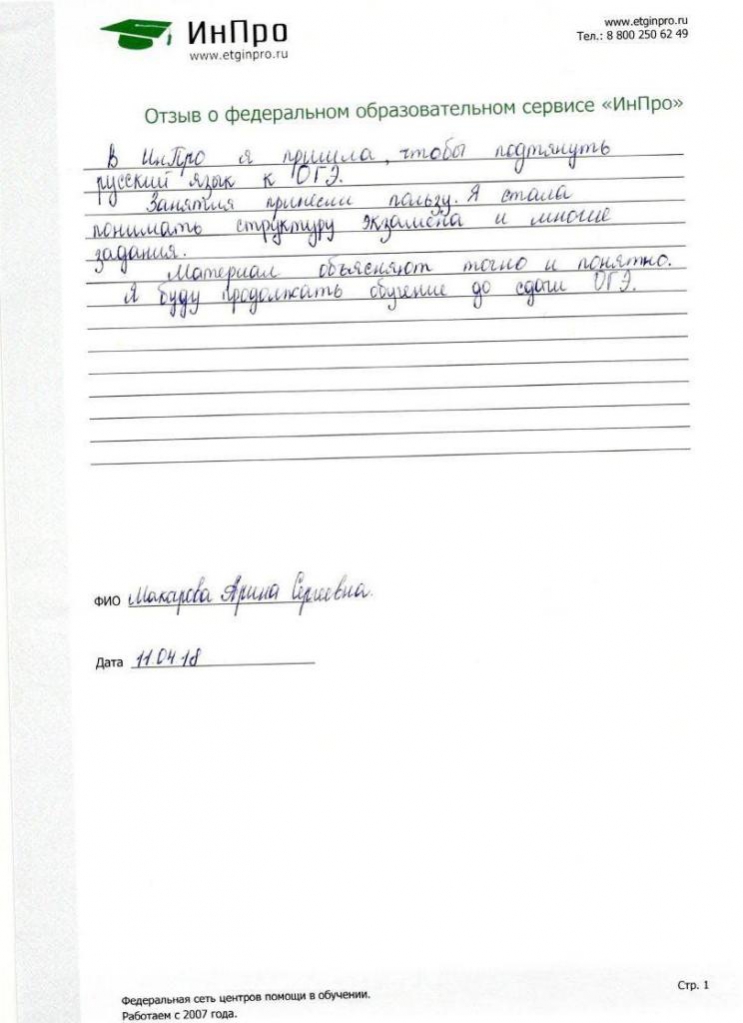 ИнПро
www.etginpro.ru
www.etginpro.ru
Тел.: 8 800 250 62 49
Отзыв о федеральном образовательном сервисе «ИнПро»
В ИнПро я пришла, чтобы подтянуть
русский язык к ОГЭ.
Занятия принесли пользу. Я стала
понимать структуру экзамена и многие
задания.
Материал объясняют точно и понятно.
Я буду продолжать обучение до сдачи ОГЭ.
ФИО Макарова Арина Сергеевна.
Дата 11.04.18
Федеральная сеть центров помощи в обучении.
Работаем с 2007 года.
Стр. 1